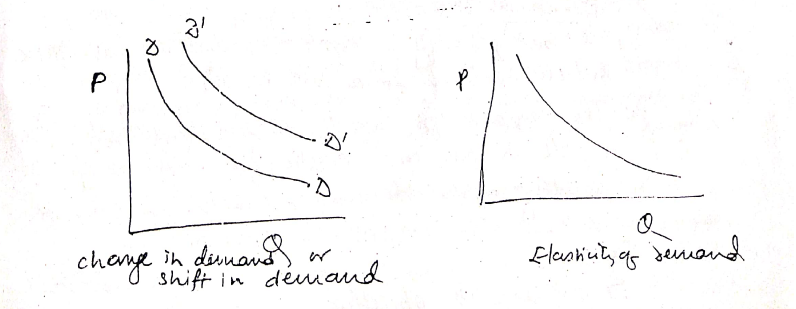 D D'
P
D'
D
Q
change in demand or
shift in demand
P
Q
Elasticity of Demand